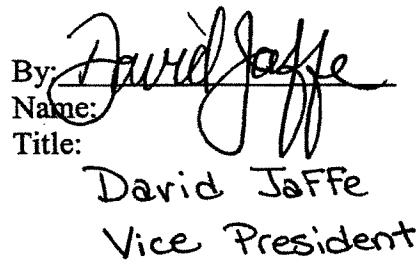 By: David Jaffe
Name:
Title:
David Jaffe
Vice President